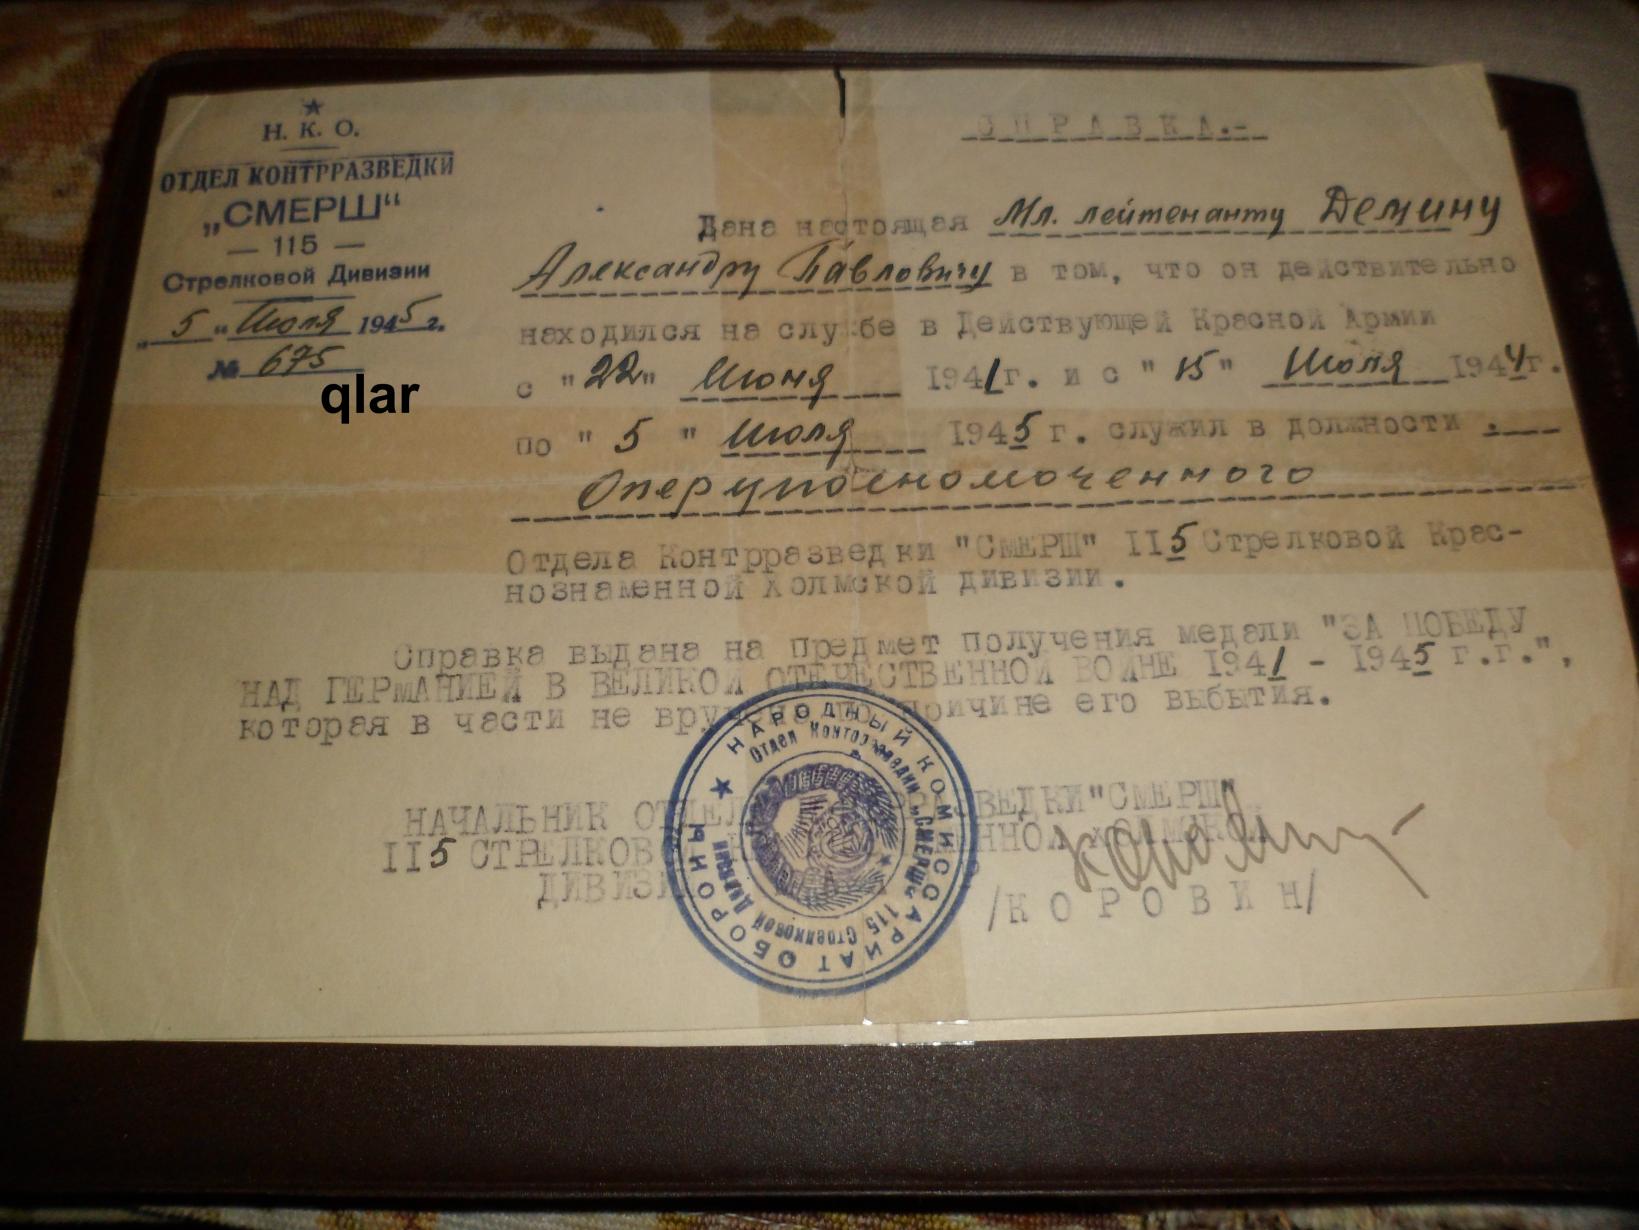 Н. К. О.
ОТДЕЛ КОНТРРАЗВЕДКИ
„СМЕРШ“
— 115 —
Стрелковой Дивизии
„ 5 “ Июля 1945 г.
№ 675
qlar
СПРАВКА.-
Дана настоящая Мл. лейтенанту Демину
Александру Павловичу в том, что он действительно
находился на службе в Действующей Красной Армии
с "22" Июня 1941г. и с "15" Июля 1944г.
по "5" Июля 1945 г. служил в должности .
Оперуполномоченного
Отдела Контрразведки "СМЕРШ" II5 Стрелковой Крас-
нознаменной Холмской дивизии.
Справка выдана на предмет получения медали "ЗА ПОБЕДУ
НАД ГЕРМАНИЕЙ В ВЕЛИКОЙ ОТЕЧЕСТВЕННОЙ ВОЙНЕ 1941 - 1945 г.г.",
которая в части не вручена по причине его выбытия.
НАЧАЛЬНИК ОТДЕЛ РАЗВЕДКИ "СМЕРШ"
II5 СТРЕЛКОВ МЕННОЙ ХОЛМСКОЙ
ДИВИЗИ
/КОРОВИН/
НАРОДНЫЙ КОМИССАРИАТ ОБОРОНЫ
Отдел Контрразведки „СМЕРШ“ 115 Стрелковой Дивизии